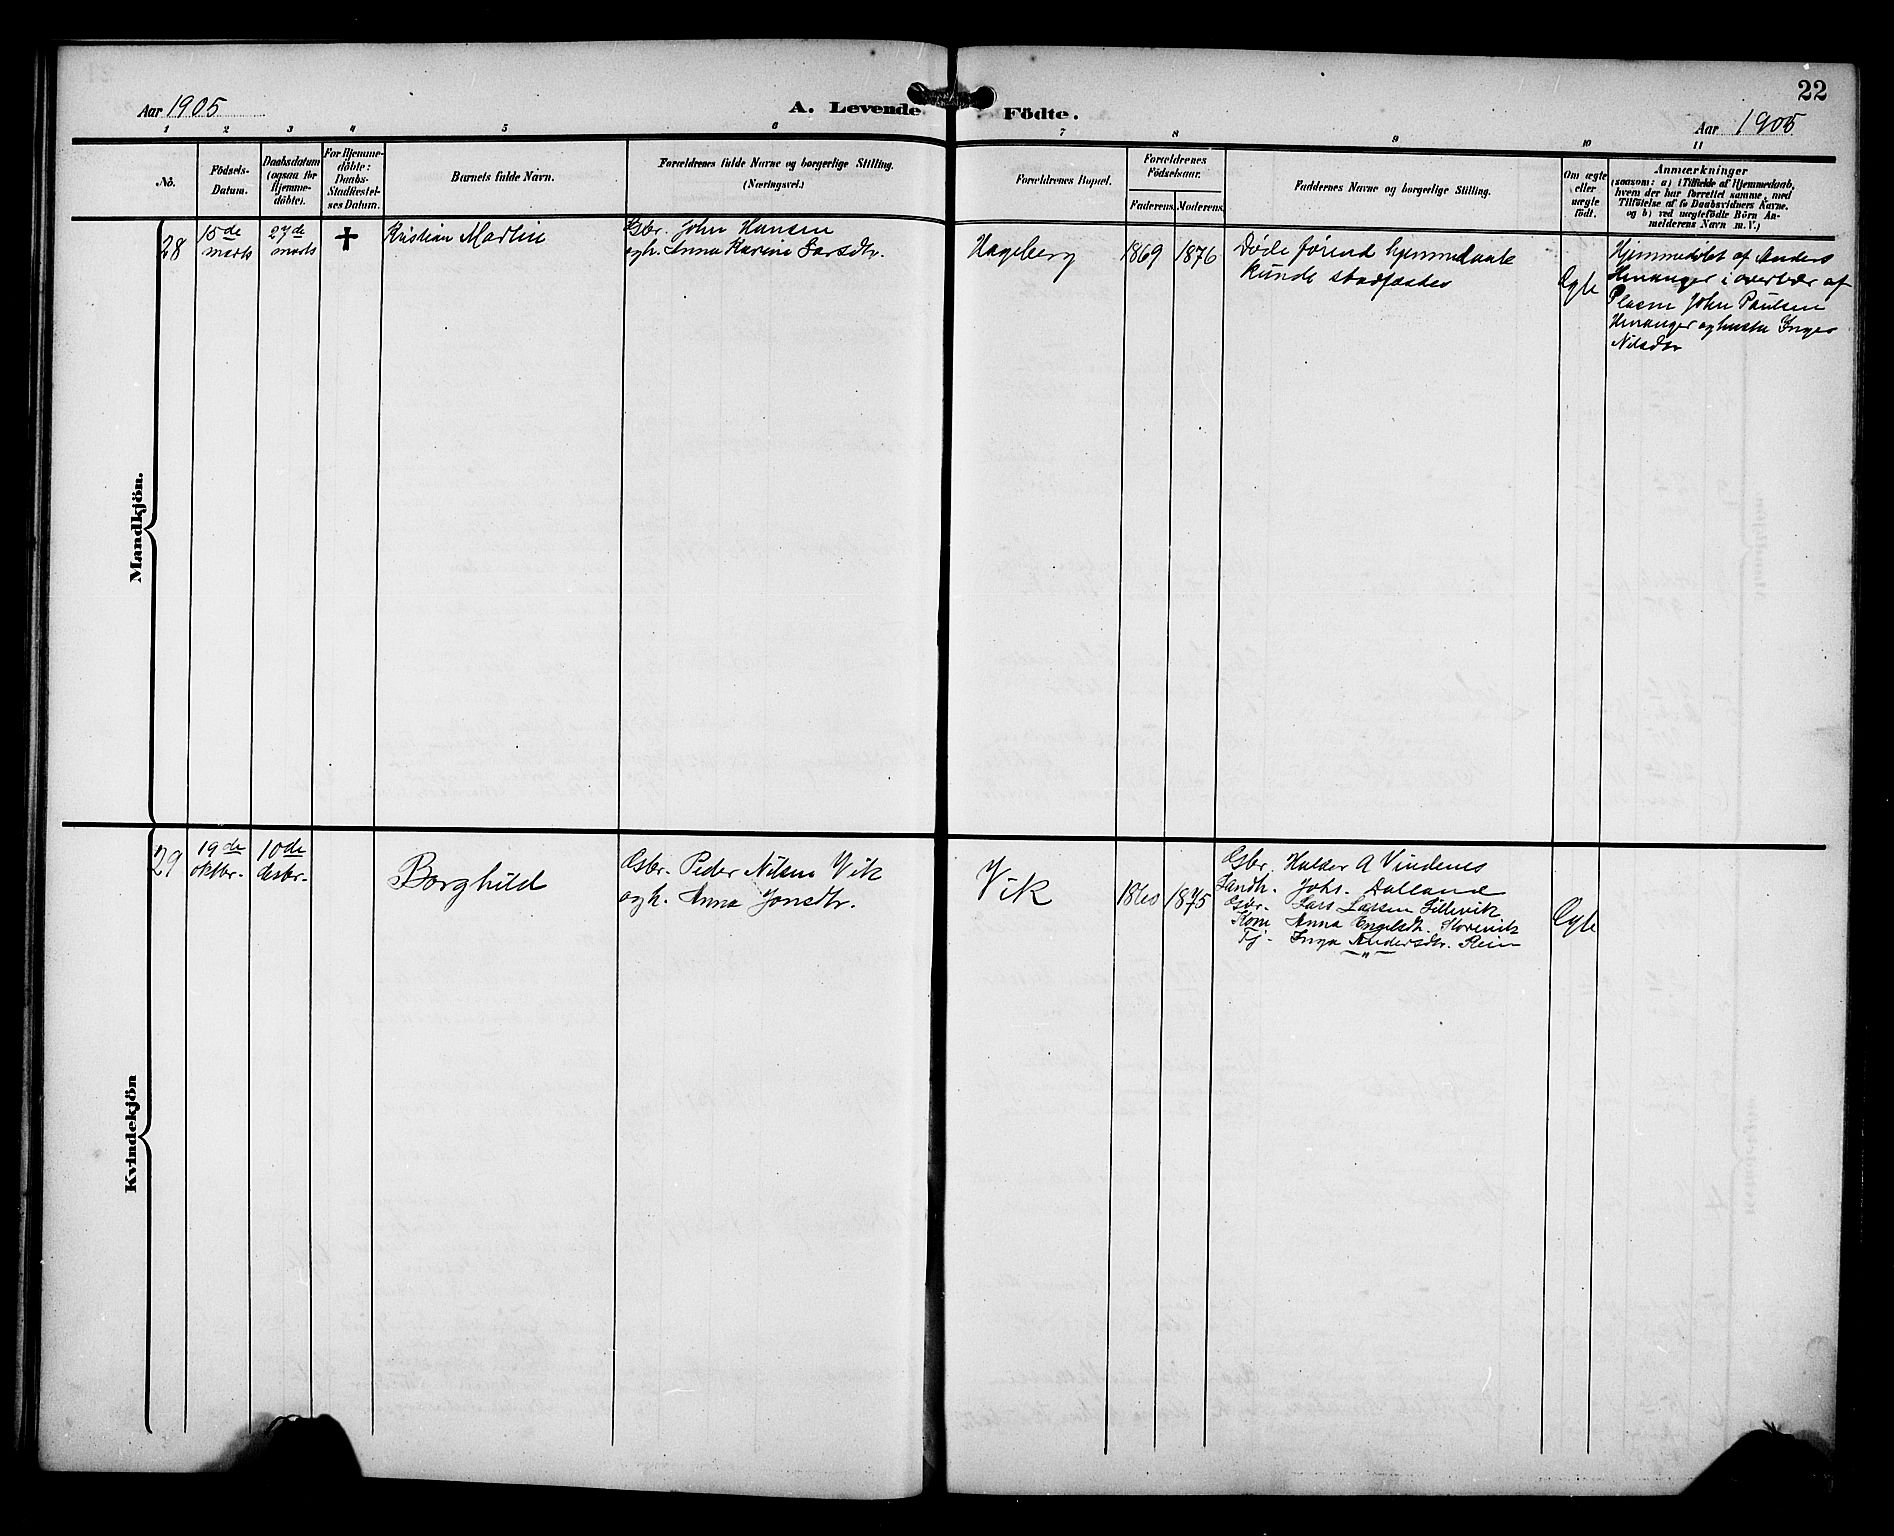 22
Aar 1905
A. Levende Födte.
Aar 1905
1 2 3 4 5 6 7 8 9 10 11
No.
Födsels-
Datum.
Daabsdatum
(ogsaa for
Hjemme-
döbte).
For Hjemme-
döbte:
Daabs-
Stadfæstel-
ses Datum.
Barnets fulde Navn.
Forældrenes fulde Navne og borgerlige Stilling.
(Næringsvei.)
Forældrenes Bopæl.
Forældrenes
Födselsaar.
Faderens. Moderens.
Faddernes Navne og borgerlige Stilling.
Om ægte
eller
uægte
födt.
Anmærkninger
(saasom: a) i Tilfælde af Hjemmedaab,
hvem der har forrettet samme, med
Tilföielse af to Daabsvidners Navne.
og b) ved uægtefödte Börn An-
melderens Navn m. V.)
Mandkjön.
28
15de
marts
27de
marts
✝
Kristian Martin
Gbr. John Hansen
og h. Anna Karine Larsdtr.
Hageberg
1869
1876
Døde førend hjemmedaab
kunde stadfæstes
Egte
Hjemmedøbt af Anders
i overvær af
John Paulsen
og hustru Inger
Nilsdtr
Kvindekjön
29
19de
oktbr.
10de
desbr.
Borghild
Gsbr. Peder Nilsen Vik
og h. Anna Jonsdtr.
Vik
1860
1875
Gbr. Haldor A Vindenes
Landh. Johs. Dalland
Gsbr. Lars Larsen Lillevik
Kone Anna Engelsdtr. Storevik
Tj. Inga Andersdtr. Rein
— „ —
Egte